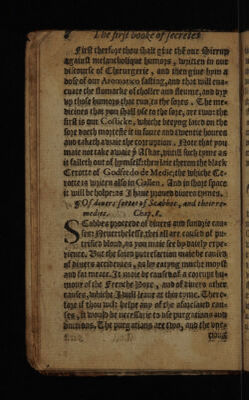 The first booke of secretes
First therfore thou shalt give thẽ one Sirrup
against melancholique humors, written in our
discourse of Chirurgerie, and then give hym a
dose of our Aromatico fasting, and that will eva-
cuate the stomacke of choller and fleume, and dry
up those humors that run to the sores. The me-
dicines that you shall use to the sore, are two: the
first is our Costicke, whiche beeyng laied on the
sore doeth mortefie it in foure and twentie houres
and taketh awaie the corruption. Note that you
maie not take awaie that, untill suche tyme as
it falleth out of hymself: then laie theron the black
Cerotte of Godfredo de Medie, the whiche Ce-
rotte is written also in Galen. And in short space
it will be holpen as I have proved divers tymes.
Of divers sortes of Scabbes, and their re-
medies. Chap.
SCabbes procede of divers and sundrie cau-
ses: Nevertheles thei all are caused of pu-
trified bloud, as you maie see by daiely expe-
rience. But the saied putrefaction maie be caused
of divers accidentes, as by eatyng muche moyst
and fat meate. It maie be caused of a corrupt hu-
mour of the Frenche Poxe, and of divers other
causes, whiche I will leave at this tyme. There-
fore if thou wilt helpe any of the aforesaied cau-
ses, it would be necessarie to use purgations and
unctions. The purgations are two, and the unc-
tions